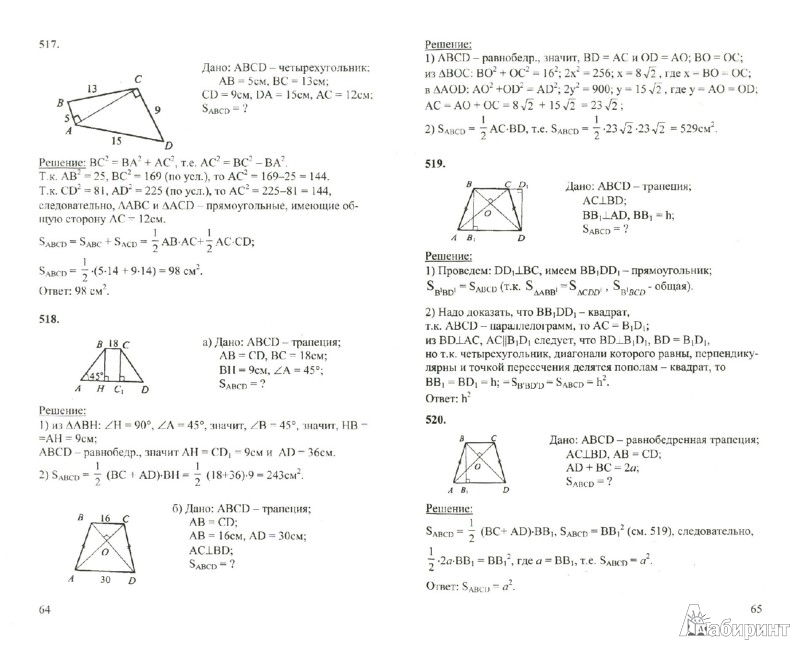 517.
B
13
C
5
9
A
15
D
Дано: ABCD – четырехугольник;
AB = 5см, BC = 13см;
CD = 9см, DA = 15см, AC = 12см;
S_ABCD = ?
Решение: BC² = BA² + AC², т.е. AC² = BC² – BA².
Т.к. AB² = 25, BC² = 169 (по усл.), то AC² = 169–25 = 144.
Т.к. CD² = 81, AD² = 225 (по усл.), то AC² = 225–81 = 144,
следовательно, ΔABC и ΔACD – прямоугольные, имеющие об-
щую сторону AC = 12см.
S_ABCD = S_ABC + S_ACD = 1/2 AB·AC+ 1/2 AC·CD;
S_ABCD = 1/2 ·(5·14 + 9·14) = 98 см².
Ответ: 98 см².
518.
B 18 C
45°
A H C₁ D
а) Дано: ABCD – трапеция;
AB = CD, BC = 18см;
BH = 9см, ∠A = 45°;
S_ABCD = ?
Решение:
1) из ΔABH: ∠H = 90°, ∠A = 45°, значит, ∠B = 45°, значит, HB =
=AH = 9см;
ABCD – равнобедр., значит AH = CD₁ = 9см и AD = 36см.
2) S_ABCD = 1/2 (BC + AD)·BH = 1/2 (18+36)·9 = 243см².
B 16 C
O
A 30 D
б) Дано: ABCD – трапеция;
AB = CD;
AB = 16см, AD = 30см;
AC⊥BD;
S_ABCD = ?
64
Решение:
1) ABCD – равнобедр., значит, BD = AC и OD = AO; BO = OC;
из ΔBOC: BO² + OC² = 16²; 2x² = 256; x = 8√2 , где x – BO = OC;
в ΔAOD: AO² +OD² = AD²; 2y² = 900; y = 15√2 , где y = AO = OD;
AC = AO + OC = 8√2 + 15√2 = 23√2 ;
2) S_ABCD = 1/2 AC·BD, т.е. S_ABCD = 1/2 ·23√2 ·23√2 = 529см².
519.
B C D₁
O
A B₁ D
Дано: ABCD – трапеция;
AC⊥BD;
BB₁⊥AD, BB₁ = h;
S_ABCD = ?
Решение:
1) Проведем: DD₁⊥BC, имеем BB₁DD₁ – прямоугольник;
S_B¹BD¹ = S_ABCD (т.к. S_ΔABB¹ = S_ΔCDD¹ , S_B¹BCD - общая).
2) Надо доказать, что BB₁DD₁ – квадрат,
т.к. ABCD – параллелограм, то AC = B₁D₁;
из BD⊥AC, AC||B₁D₁ следует, что BD⊥B₁D₁, BD = B₁D₁,
но т.к. четырехугольник, диагонали которого равны, перпендику-
лярны и точкой пересечения делятся пополам – квадрат, то
BB₁ = BD₁ = h; = S_B¹BD¹D = S_ABCD = h².
Ответ: h²
520.
B C
O
A B₁ D
Дано: ABCD – равнобедренная трапеция;
AC⊥BD, AB = CD;
AD + BC = 2a;
S_ABCD = ?
Решение:
S_ABCD = 1/2 (BC+ AD)·BB₁, S_ABCD = BB₁² (см. 519), следовательно,
1/2 ·2a·BB₁ = BB₁², где a = BB₁, т.е. S_ABCD = a².
Ответ: S_ABCD = a².
65
Лабиринт